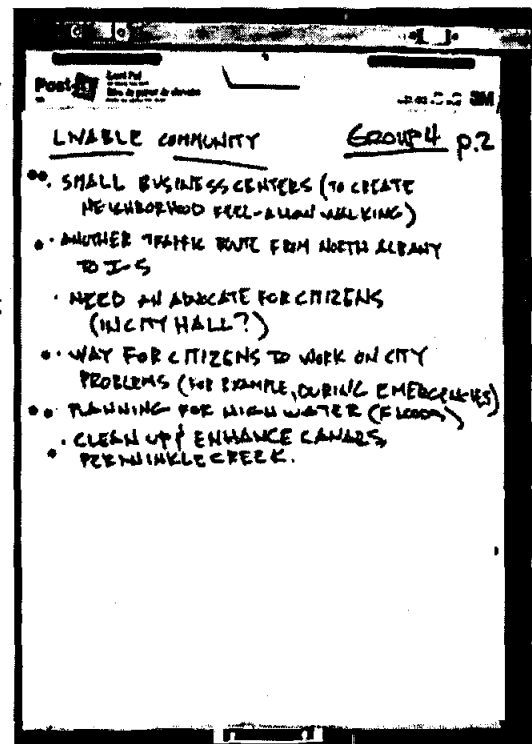 Post-it
3M
LIVABLE COMMUNITY GROUP 4 p.2
•• • SMALL BUSINESS CENTERS (TO CREATE
NEIGHBORHOOD FEEL - ALLOW WALKING)
• • ANOTHER TRAFFIC ROUTE FROM NORTH ALBANY
TO I-5
• NEED AN ADVOCATE FOR CITIZENS
(IN CITY HALL?)
• • WAY FOR CITIZENS TO WORK ON CITY
PROBLEMS (FOR EXAMPLE, DURING EMERGENCIES)
•• • PLANNING FOR HIGH WATER (FLOODS)
• CLEAN UP & ENHANCE CANALS,
• PERIWINKLE CREEK.